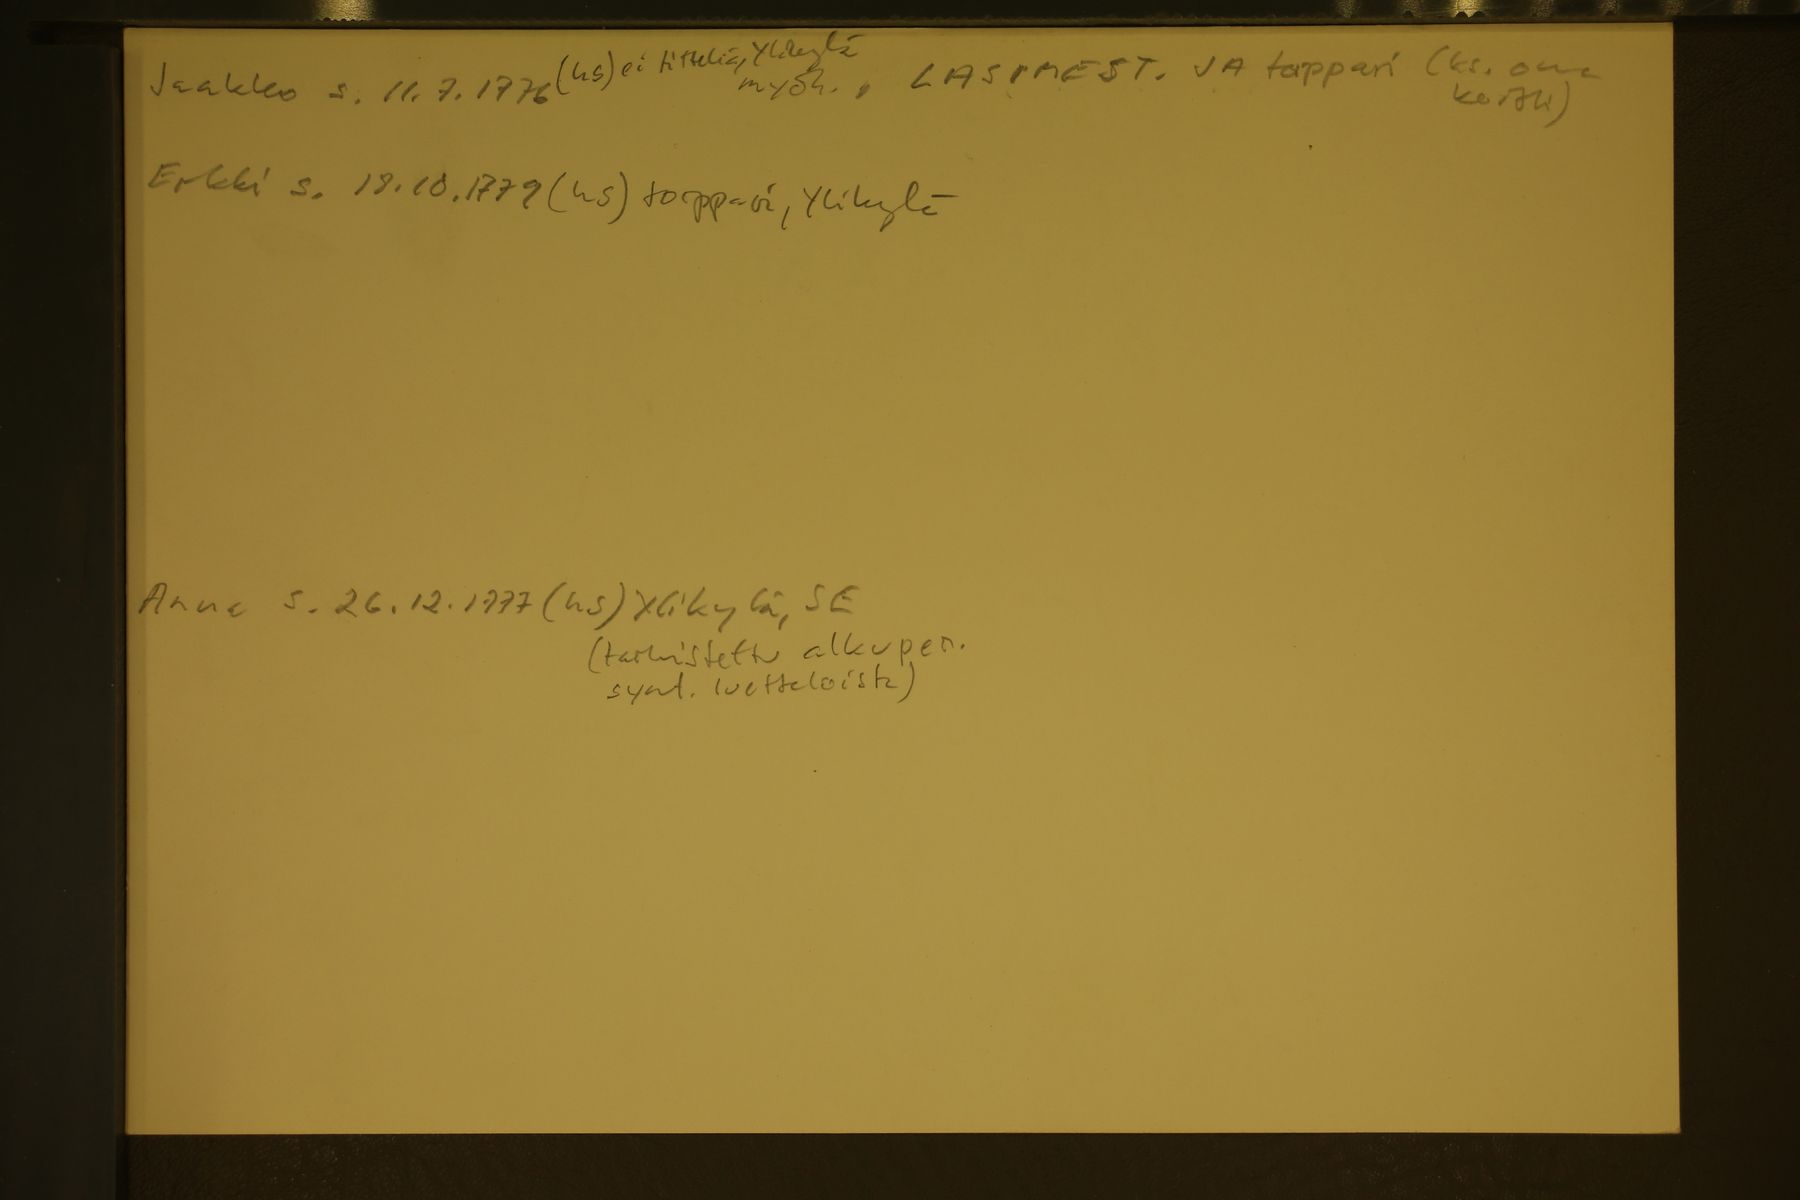 Jaakko s. 11.7.1776 (hs) ei titteliä, Ylikylä
myöh., LASIMEST. JA torppari (ks. oma
kortti)
Erkki s. 18.10.1779 (hs) torppari, Ylikylä
Anna s. 26.12.1777 (hs) Ylikylä, SE
(tarkistettu alkuper.
synt. luetteloista)